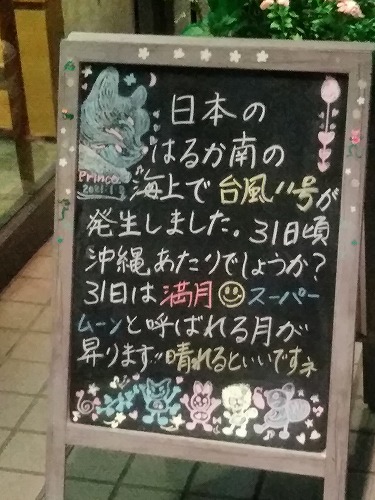 日本の
はるか南の
Prince
海上で台風11号が
発生しました。31日頃
沖縄あたりでしょうか?
31日は満月スーパー
ムーンと呼ばれる月が
昇ります!!晴れるといいですネ